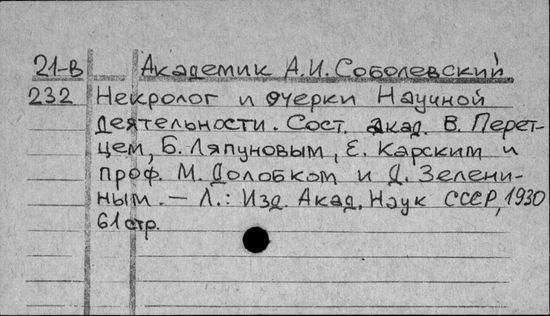 21-В Академик А.И. Соболевский
232 Некролог и очерки Научной
деятельности. Сост. акад. В. Перет-
цем, Б. Ляпуновым, Е. Карским и
проф. М. Долобком и Д. Зелени-
ным. — Л.: Изд. Акад. Наук СССР, 1930
61 стр.